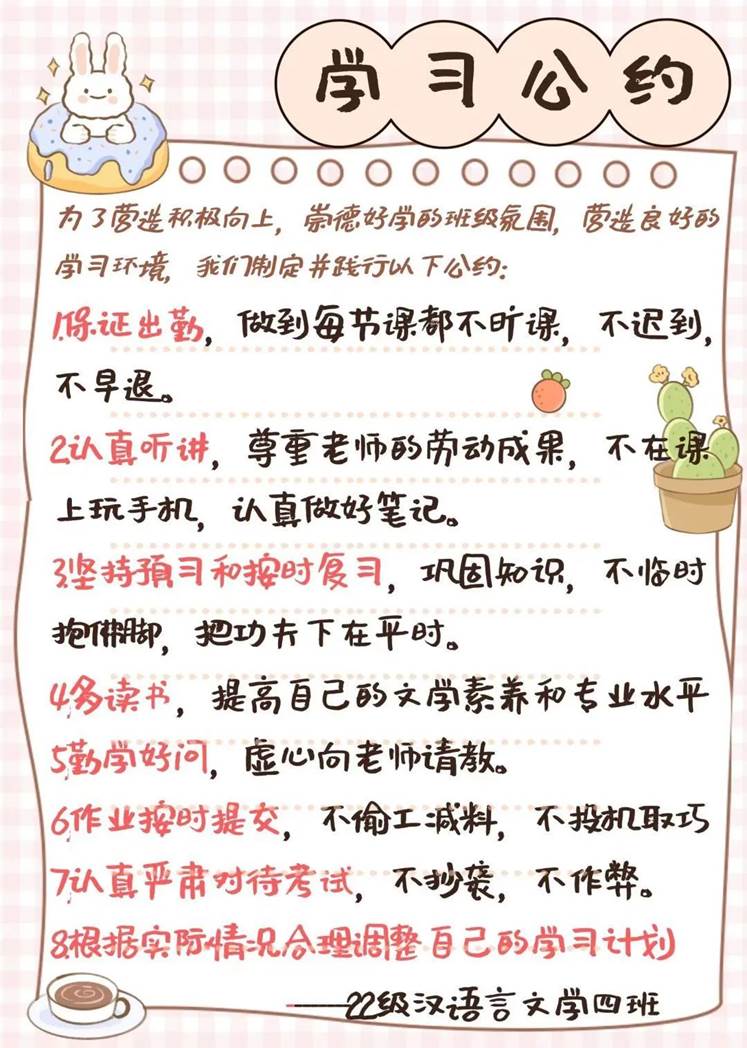 学习公约
为了营造积极向上，崇德好学的班级氛围，营造良好的
学习环境，我们制定并践行以下公约：
1.保证出勤，做到每节课都不旷课，不迟到，
不早退。
2.认真听讲，尊重老师的劳动成果，不在课
上玩手机，认真做好笔记。
3.坚持预习和按时复习，巩固知识，不临时
抱佛脚，把功夫下在平时。
4.多读书，提高自己的文学素养和专业水平
5.勤学好问，虚心向老师请教。
6.作业按时提交，不偷工减料，不投机取巧
7.认真严肃对待考试，不抄袭，不作弊。
8.根据实际情况合理调整自己的学习计划
——22级汉语言文学四班